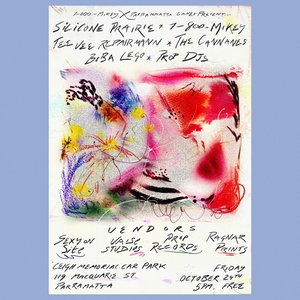 1-800-MIKEY X PARRAMATTA LANES PRESENT...
SILICONE PRAIRIE * 1-800-MIKEY
TEE VEE REPAIRMANN * THE CANNANES
BOBA LEGO * PROP DJS
VENDORS
SEXY ON SITE
VALVE STUDIOS
PROP RECORDS
RAGNAR PRINTS
LEIGH MEMORIAL CAR PARK
119 MACQUARIE ST
PARRAMATTA
FRIDAY
OCTOBER 24TH
5PM. FREE